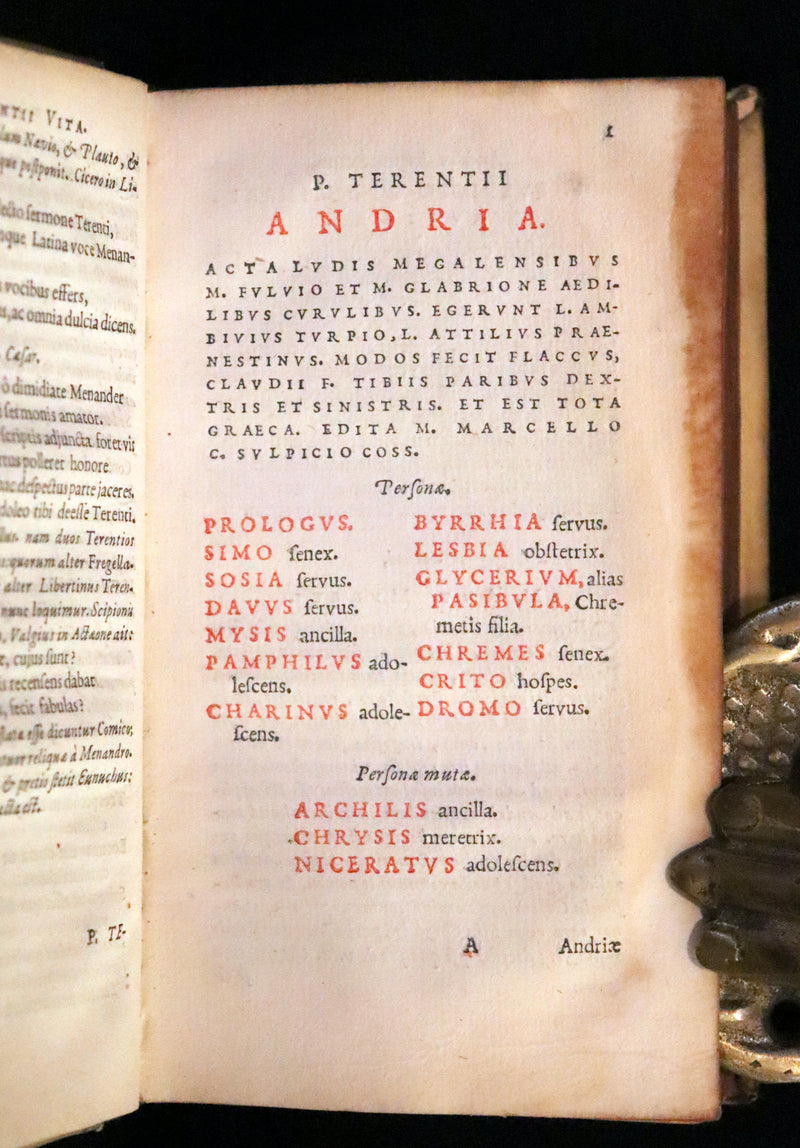 NTII VITA.
Nævio, & Plauto, &
que postponit. Cicero in Li-
sermone Terenti,
Latina voce Menan-
vocibus effers,
ac omnia dulcia dicens.
Cæsar.
ô dimidiate Menander
sermonis amator.
adjuncta foret vis
polleret honore
despectus parte jaceres.
doleo tibi deesse Terenti.
nam duos Terentios
quorum alter Fregella-
alter Libertinus Teren-
nunc loquimur. Scipionis
Valgius in Actaone ait:
cujus sunt?
recensens dabat
fecit fabulas?
esse dicuntur Comico,
reliquæ à Menandro.
& pretio stetit Eunuchus:
est.
P. TE-
1
P. TERENTII
ANDRIA.
ACTA LVDIS MEGALENSIBVS
M. FVLVIO ET M. GLABRIONE AEDI-
LIBVS CVRVLIBVS. EGERVNT L. AM-
BIVIVS TVRPIO, L. ATTILIVS PRAE-
NESTINVS. MODOS FECIT FLACCVS,
CLAVDII F. TIBIIS PARIBVS DEX-
TRIS ET SINISTRIS. ET EST TOTA
GRAECA. EDITA M. MARCELLO
C. SVLPICIO COSS.
Perſonæ.
PROLOGVS.
SIMO ſenex.
SOSIA ſervus.
DAVVS ſervus.
MYSIS ancilla.
PAMPHILVS ado-
leſcens.
CHARINVS adole-
ſcens.
BYRRHIA ſervus.
LESBIA obſtetrix.
GLYCERIVM, alias
PASIBVLA, Chre-
metis filia.
CHREMES ſenex.
CRITO hoſpes.
DROMO ſervus.
Perſonæ mutæ.
ARCHILIS ancilla.
CHRYSIS meretrix.
NICERATVS adoleſcens.
A Andriæ